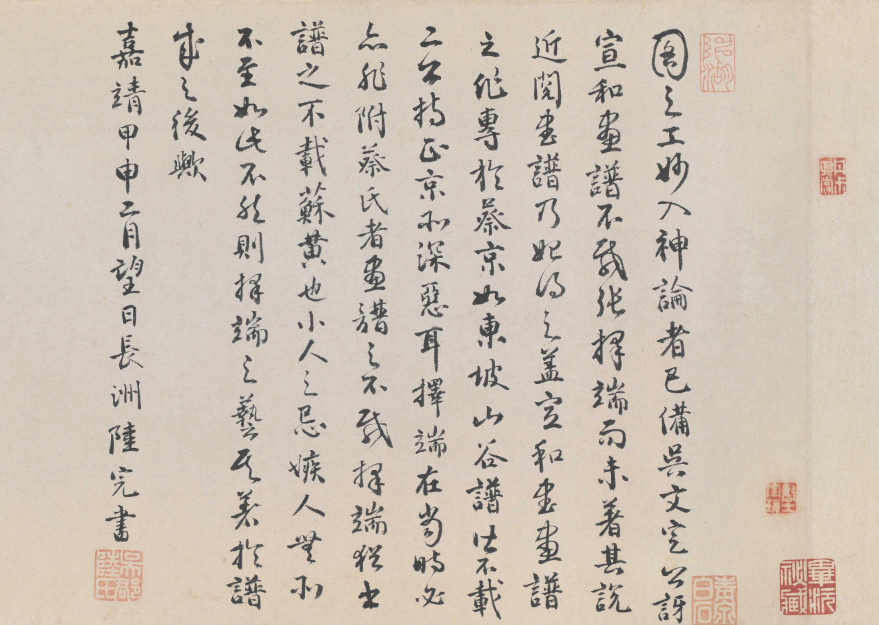 圖之工妙入神論者已備吳文定公訝
宣和畫譜不載張擇端而未著其說
近閱書譜乃始得之盖宣和書畫譜
之作專於蔡京如東坡山谷譜皆不載
二公持正京所深惡耳擇端在當時必
亦非附蔡氏者畫譜之不載擇端猶書
譜之不載蘇黃也小人之忌嫉人無所
不至如此不然則擇端之藝其著於譜
成之後歟
嘉靖甲申二月望日長洲陸完書